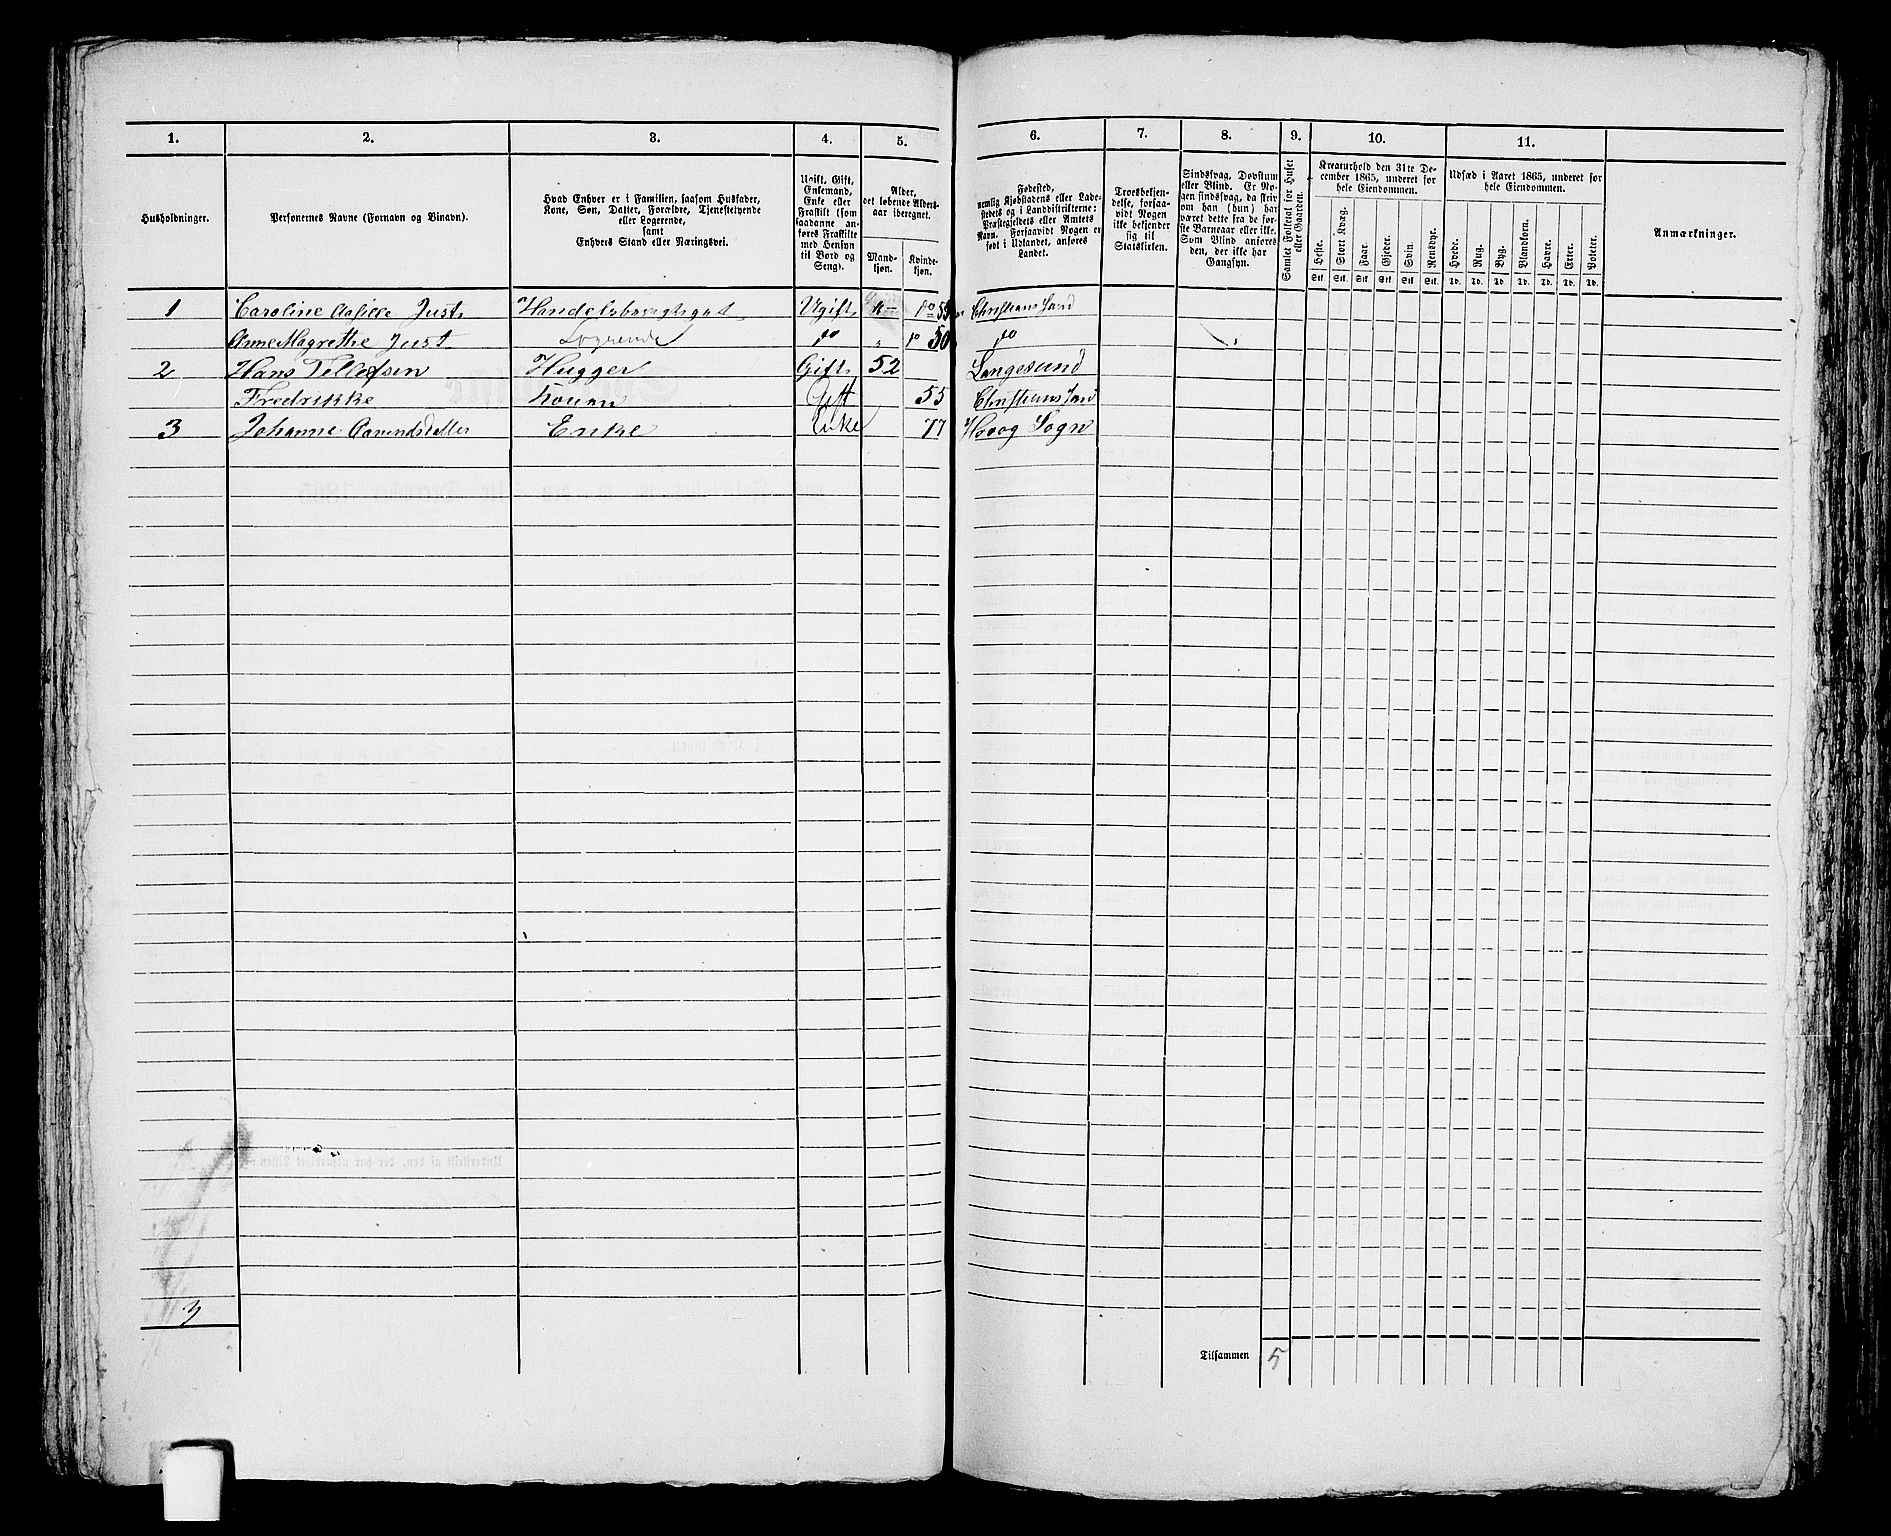 1. 2. 3. 4. 5. 6. 7. 8. 9. 10. 11.
Husholdninger.
Personernes Navne (Fornavn og Binavn).
Hvad Enhver er i Familien, saasom Husfader,
Kone, Søn, Datter, Forældre, Tjenestetyende
eller Logerende,
samt
Enhvers Stand eller Næringsvei.
Ugift, Gift,
Enkemand,
Enke eller
Fraskilt (som
saadanne an-
føres Fraskilte
med Hensyn
til Bord og
Seng).
Alder,
det løbende Alders-
aar iberegnet.
Mand-
kjøn.
Kvinde-
kjøn.
Fødested,
nemlig Kjøbstadens eller Lade-
stedets og i Landdistrikterne:
Præstegjeldets eller Amtets
Navn. Forsaavidt Nogen er
født i Udlandet, anføres
Landet.
Troesbekjen-
delse, forsaa-
vidt Nogen
ikke bekjender
sig til
Statskirken.
Sindssvag, Døvstum
eller Blind. Er No-
gen sindssvag, da skriv
om han (hun) har
været dette fra de før-
ste Barneaar eller ikke.
Som Blind anføres
den, der ikke har
Gangsyn.
Samlet Folketal for Huset
eller Gaarden.
Kreaturhold den 31te De-
cember 1865, underet for
hele Eiendommen.
Heste. Stort Kvæg. Faar. Gjeder. Svin. Rensdyr.
Stk. Stk. Stk. Stk. Stk. Stk.
Udsæd i Aaret 1865, underet for
hele Eiendommen.
Hvede. Rug. Byg. Blandkorn. Havre. Erter. Poteter.
Td. Td. Td. Td. Td. Td. Td.
Anmærkninger.
1 Caroline Just Ugift Christianssand
Anne Magrethe Just Logerende do " do 50 do
2 Hans Tellefsen Hugger Gift 52 Langesund
Fredrikke Konen Gift 55 Christianssand
3 Johanne Enke Enke 77 Sogn
3
Tilsammen 5